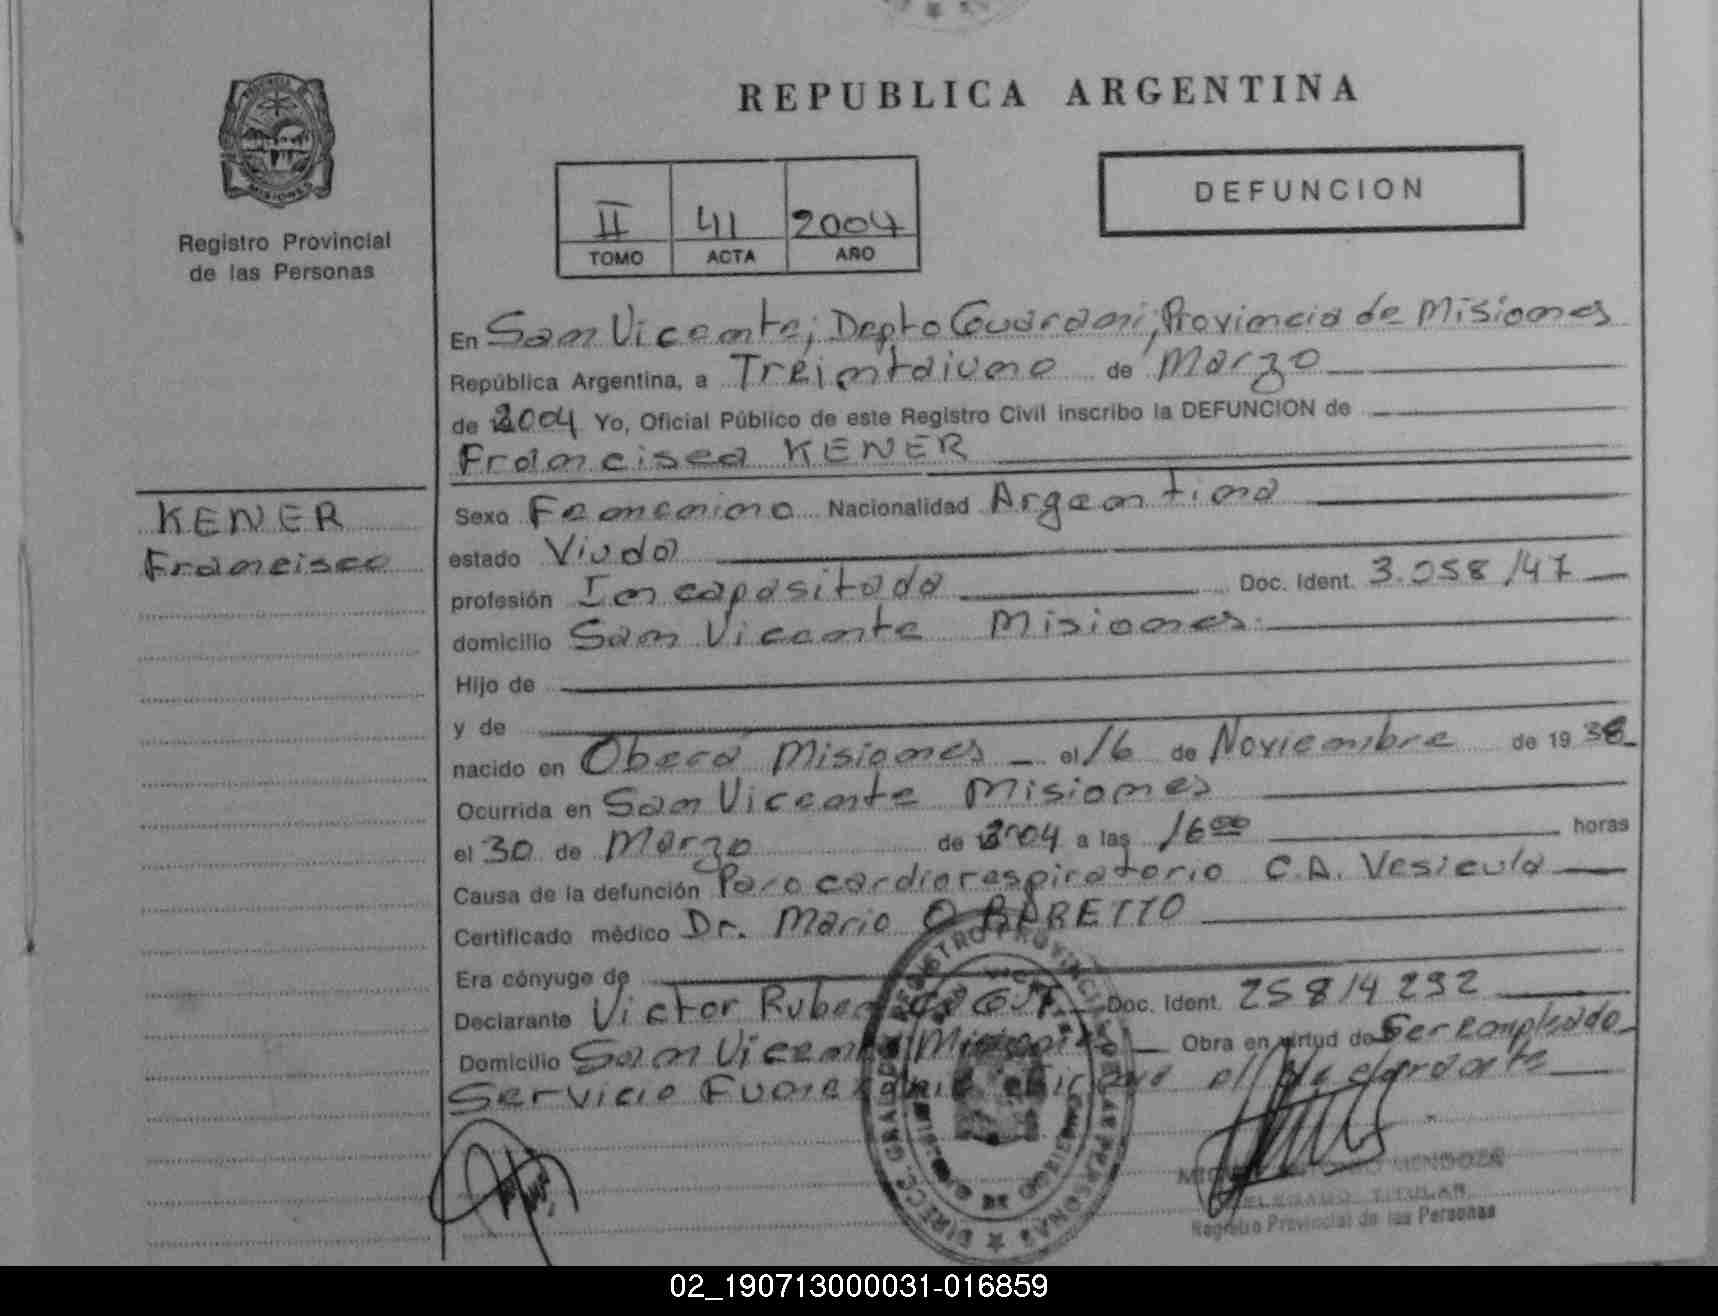 REPUBLICA ARGENTINA
PROVINCIA
MISIONES
Registro Provincial
de las Personas
II 41 2004
TOMO ACTA AÑO
DEFUNCION
En San Vicente; Depto Guarani; Provincia de Misiones
República Argentina, a Treintaiuno de Marzo
de 2004 Yo, Oficial Público de este Registro Civil inscribo la DEFUNCION de
Francisca KENER
KENER
Francisca
Sexo Femenino Nacionalidad Argentina
estado Viuda
profesión Incapasitada Doc. Ident. 3.058/47
domicilio San Vicente Misiones
Hijo de
y de
nacido en Oberá Misiones el 16 de Noviembre de 1938
Ocurrida en San Vicente Misiones
el 30 de Marzo de 2004 a las 16 00 horas
Causa de la defunción Paro cardiorespiratorio C.A. Vesicula
Certificado médico Dr. Mario O BARETTO
Era cónyuge de
Declarante Victor Ruben Doc. Ident. 258/4 232
Domicilio San Vicente Misiones Obra en virtud de Ser empleado
Servicio el declarante
MENDOZA
DELEGADO TITULAR
Registro Provincial de las Personas
02_190713000031-016859